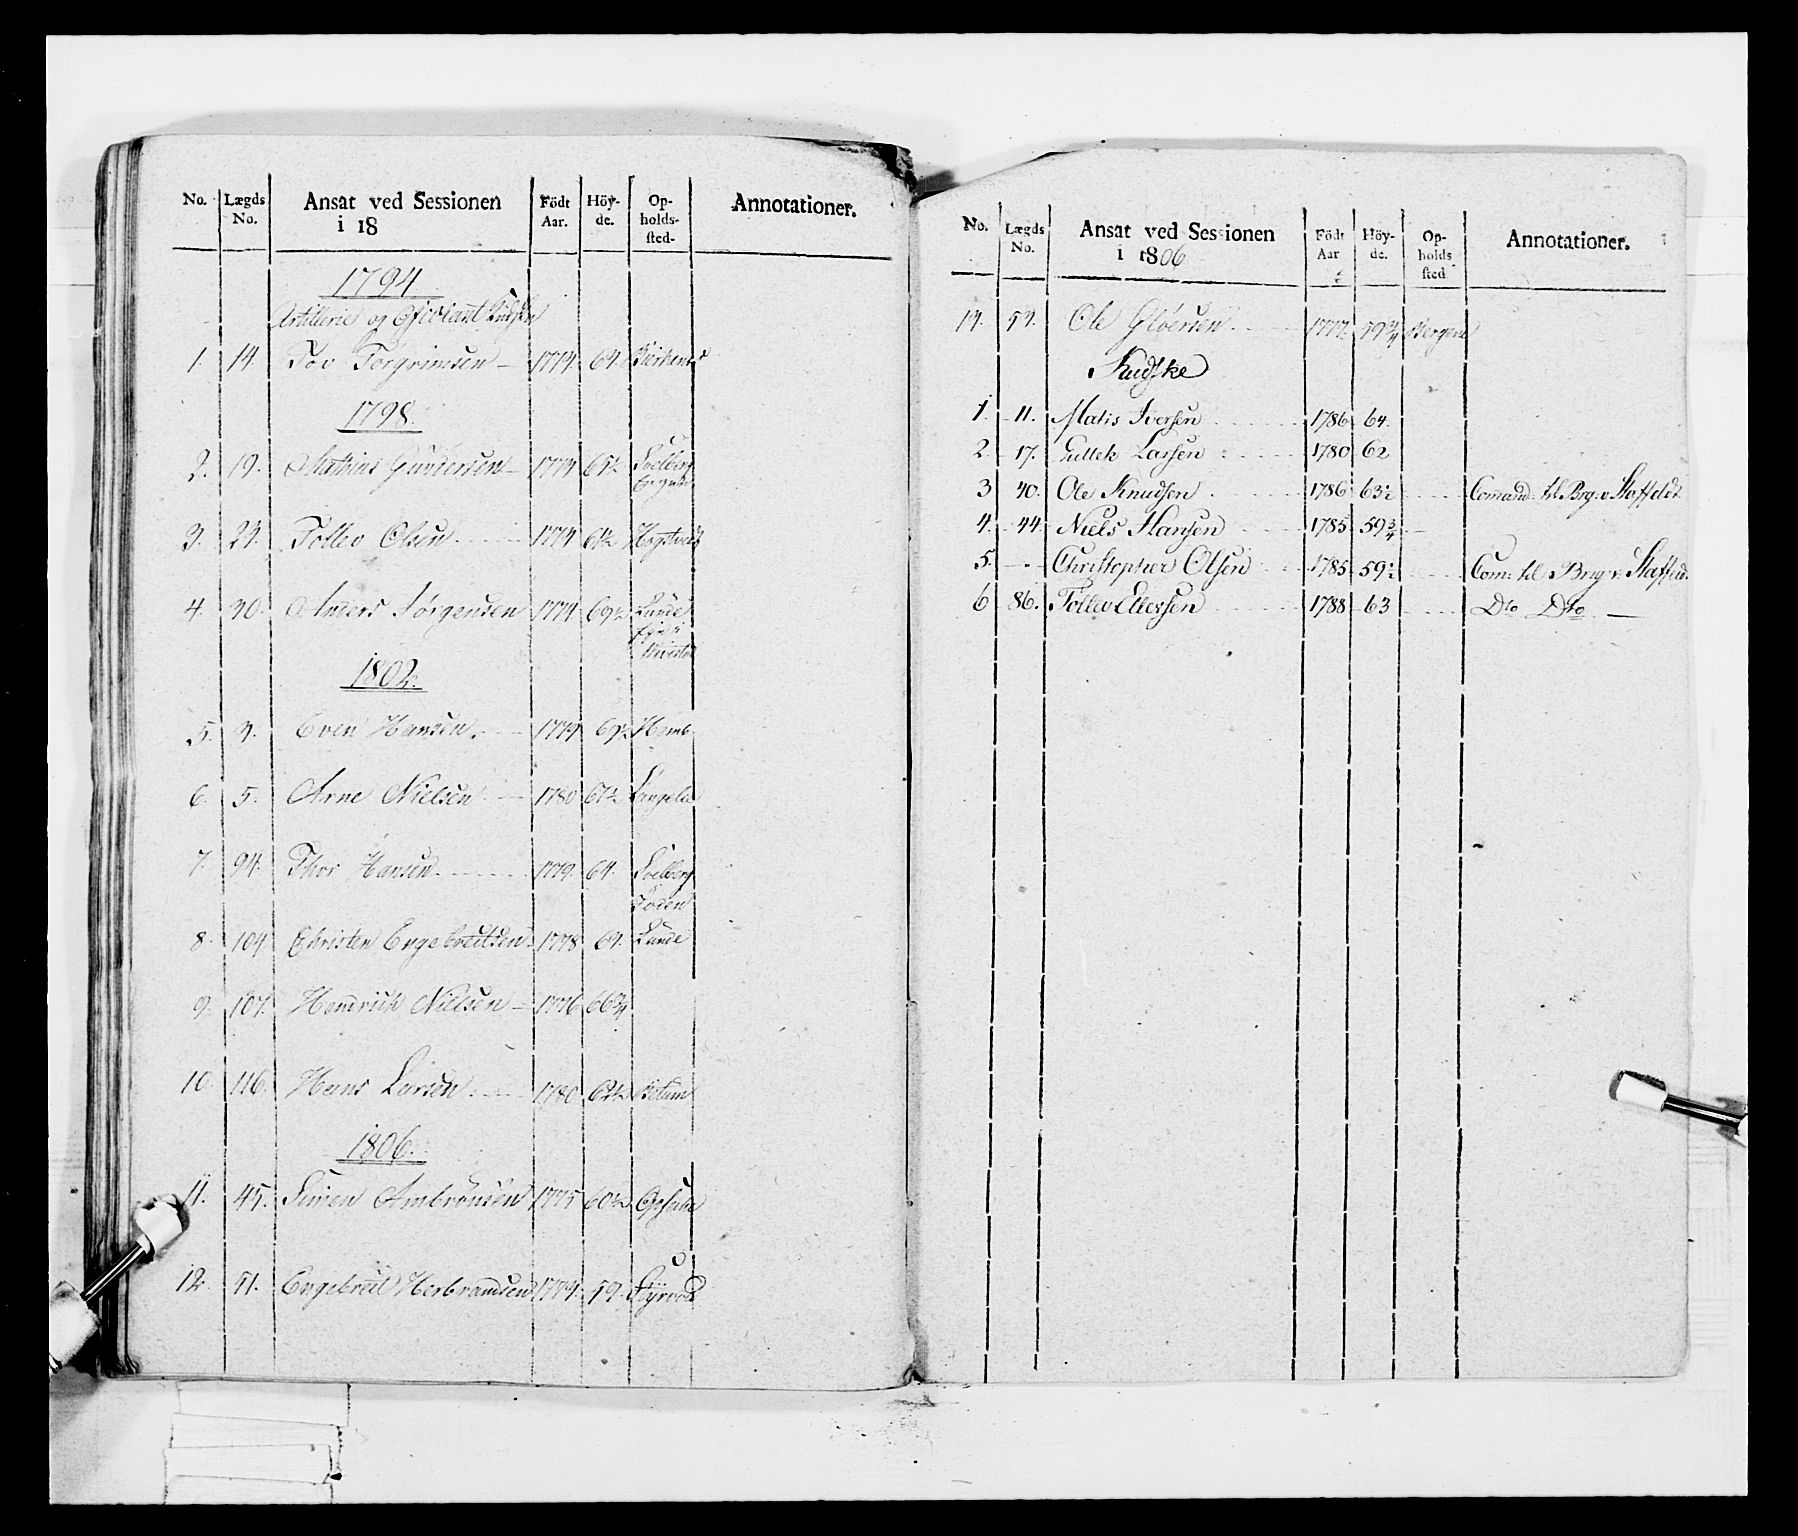 No. Lægds No. Ansat ved Sessionen i 18 Födt Aar. Höy-de. Op-holds-sted- Annotationer.
1794
Artillerie og
1. 14. Tov Torgrimsen 1774. 64.
1798.
2. 19. Mathias Gundersen 1774 Soelberg
3. 23. Tollev Olsen 1774
4. 30. Anders Jørgensen 1774 69½ Lunde
1802.
5. 3. Even Hansen. 1779 Hemb
6. 5. Arne Nielsen 1780 67½ Langelie
7. 94. Thor Hansen 1779. 64. Soelberg
8. 104. Christen Engebretsen 1778 Lunde
9. 107. Hendrich Nielsen 1776 66¾
10. 116. Hans Larsen 1780
1806.
11. 45. Simen Ambrönsen 1775 60½ Opsahl
12. 51. Engebret Herbrandsen 1779. 59.
No. Lægds No. Ansat ved Sessionen i 1806 Födt Aar Höy-de. Op-holds sted Annotationer.
Ole Glöersen 1777. 59¾ Bergerud
Kudske
1. 11. Matis Iversen 1786 64.
2. 17. Gullek Larsen 1780 62
3 40. Ole Knudsen 1786 63½ Comand: til Brg. v Staffeldt
4. 44. Niels Hansen 1785 59¾
5. - Christopher Olsen 1785 59½ Com: til Brig v. Staffeldt
6 86. Tollev Ellefsen 1788 63 Dto Dto